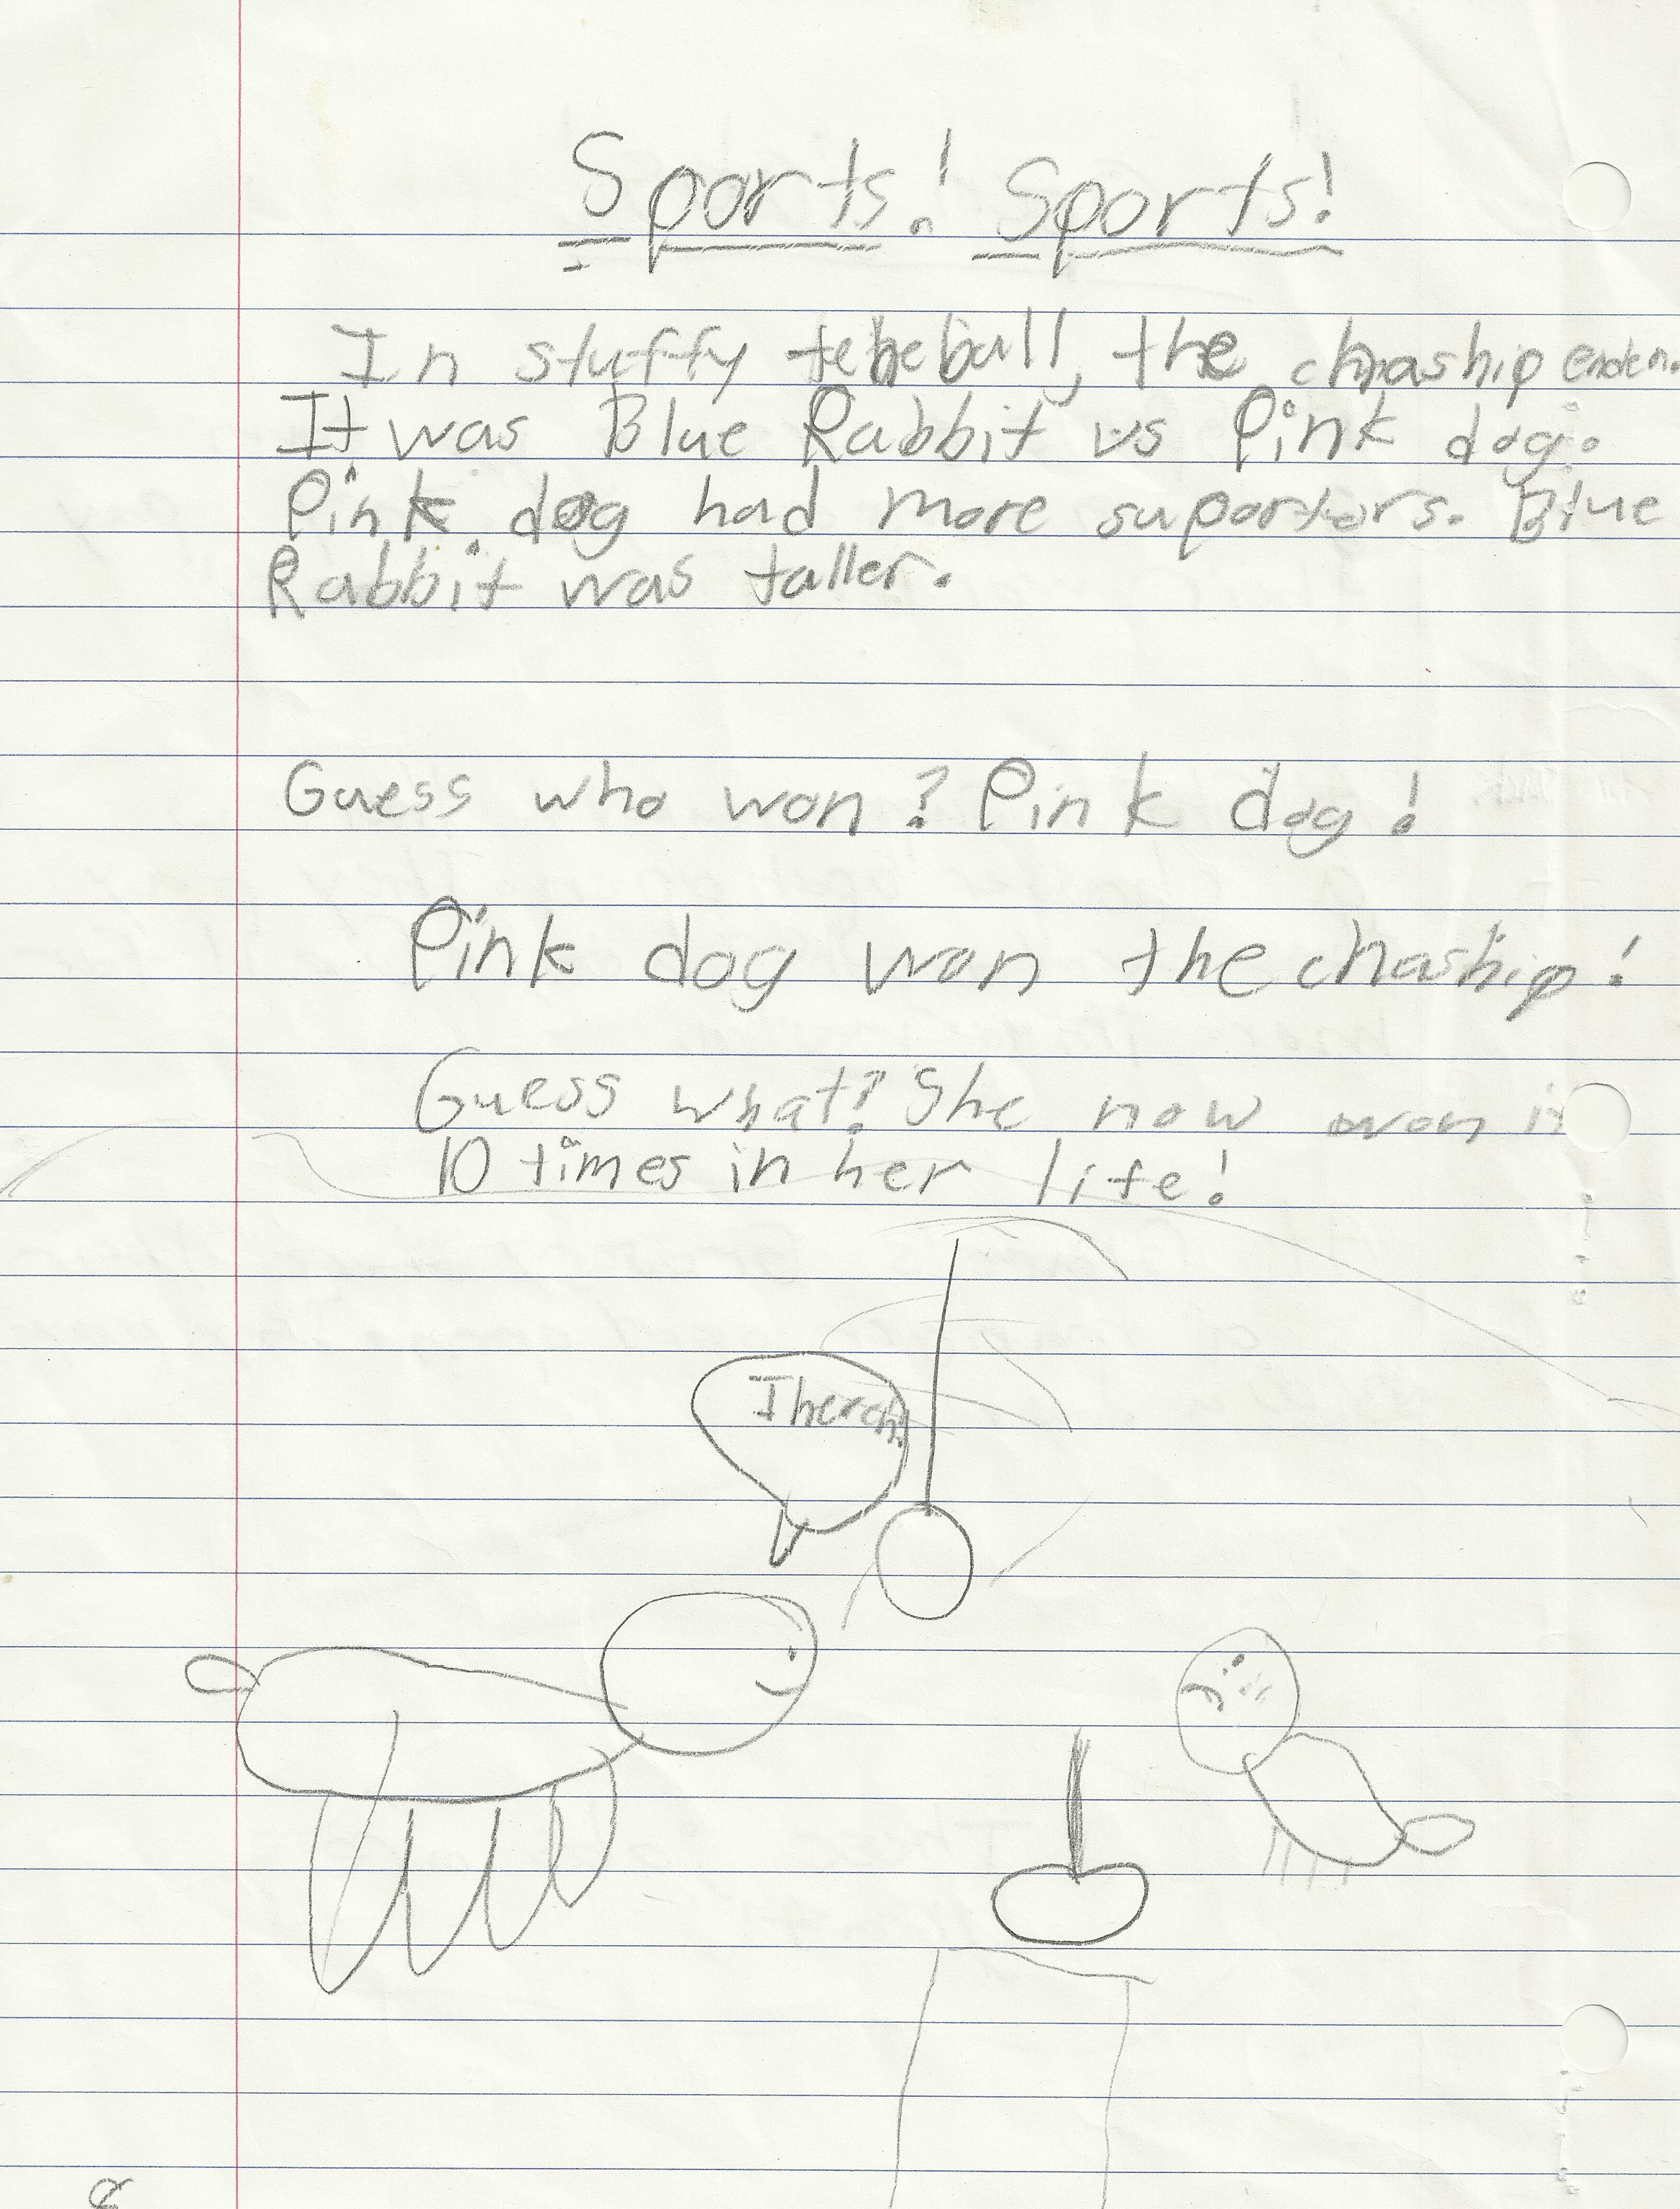 Sports! Sports!
In stuffy teheball, the chaship
It was Blue Rabbit vs Pink dog.
Pink dog had more suporters. Blue
Rabbit was taller.
Guess who won? Pink dog!
Pink dog won the chaship!
Guess what? She now won it
10 times in her life!
I